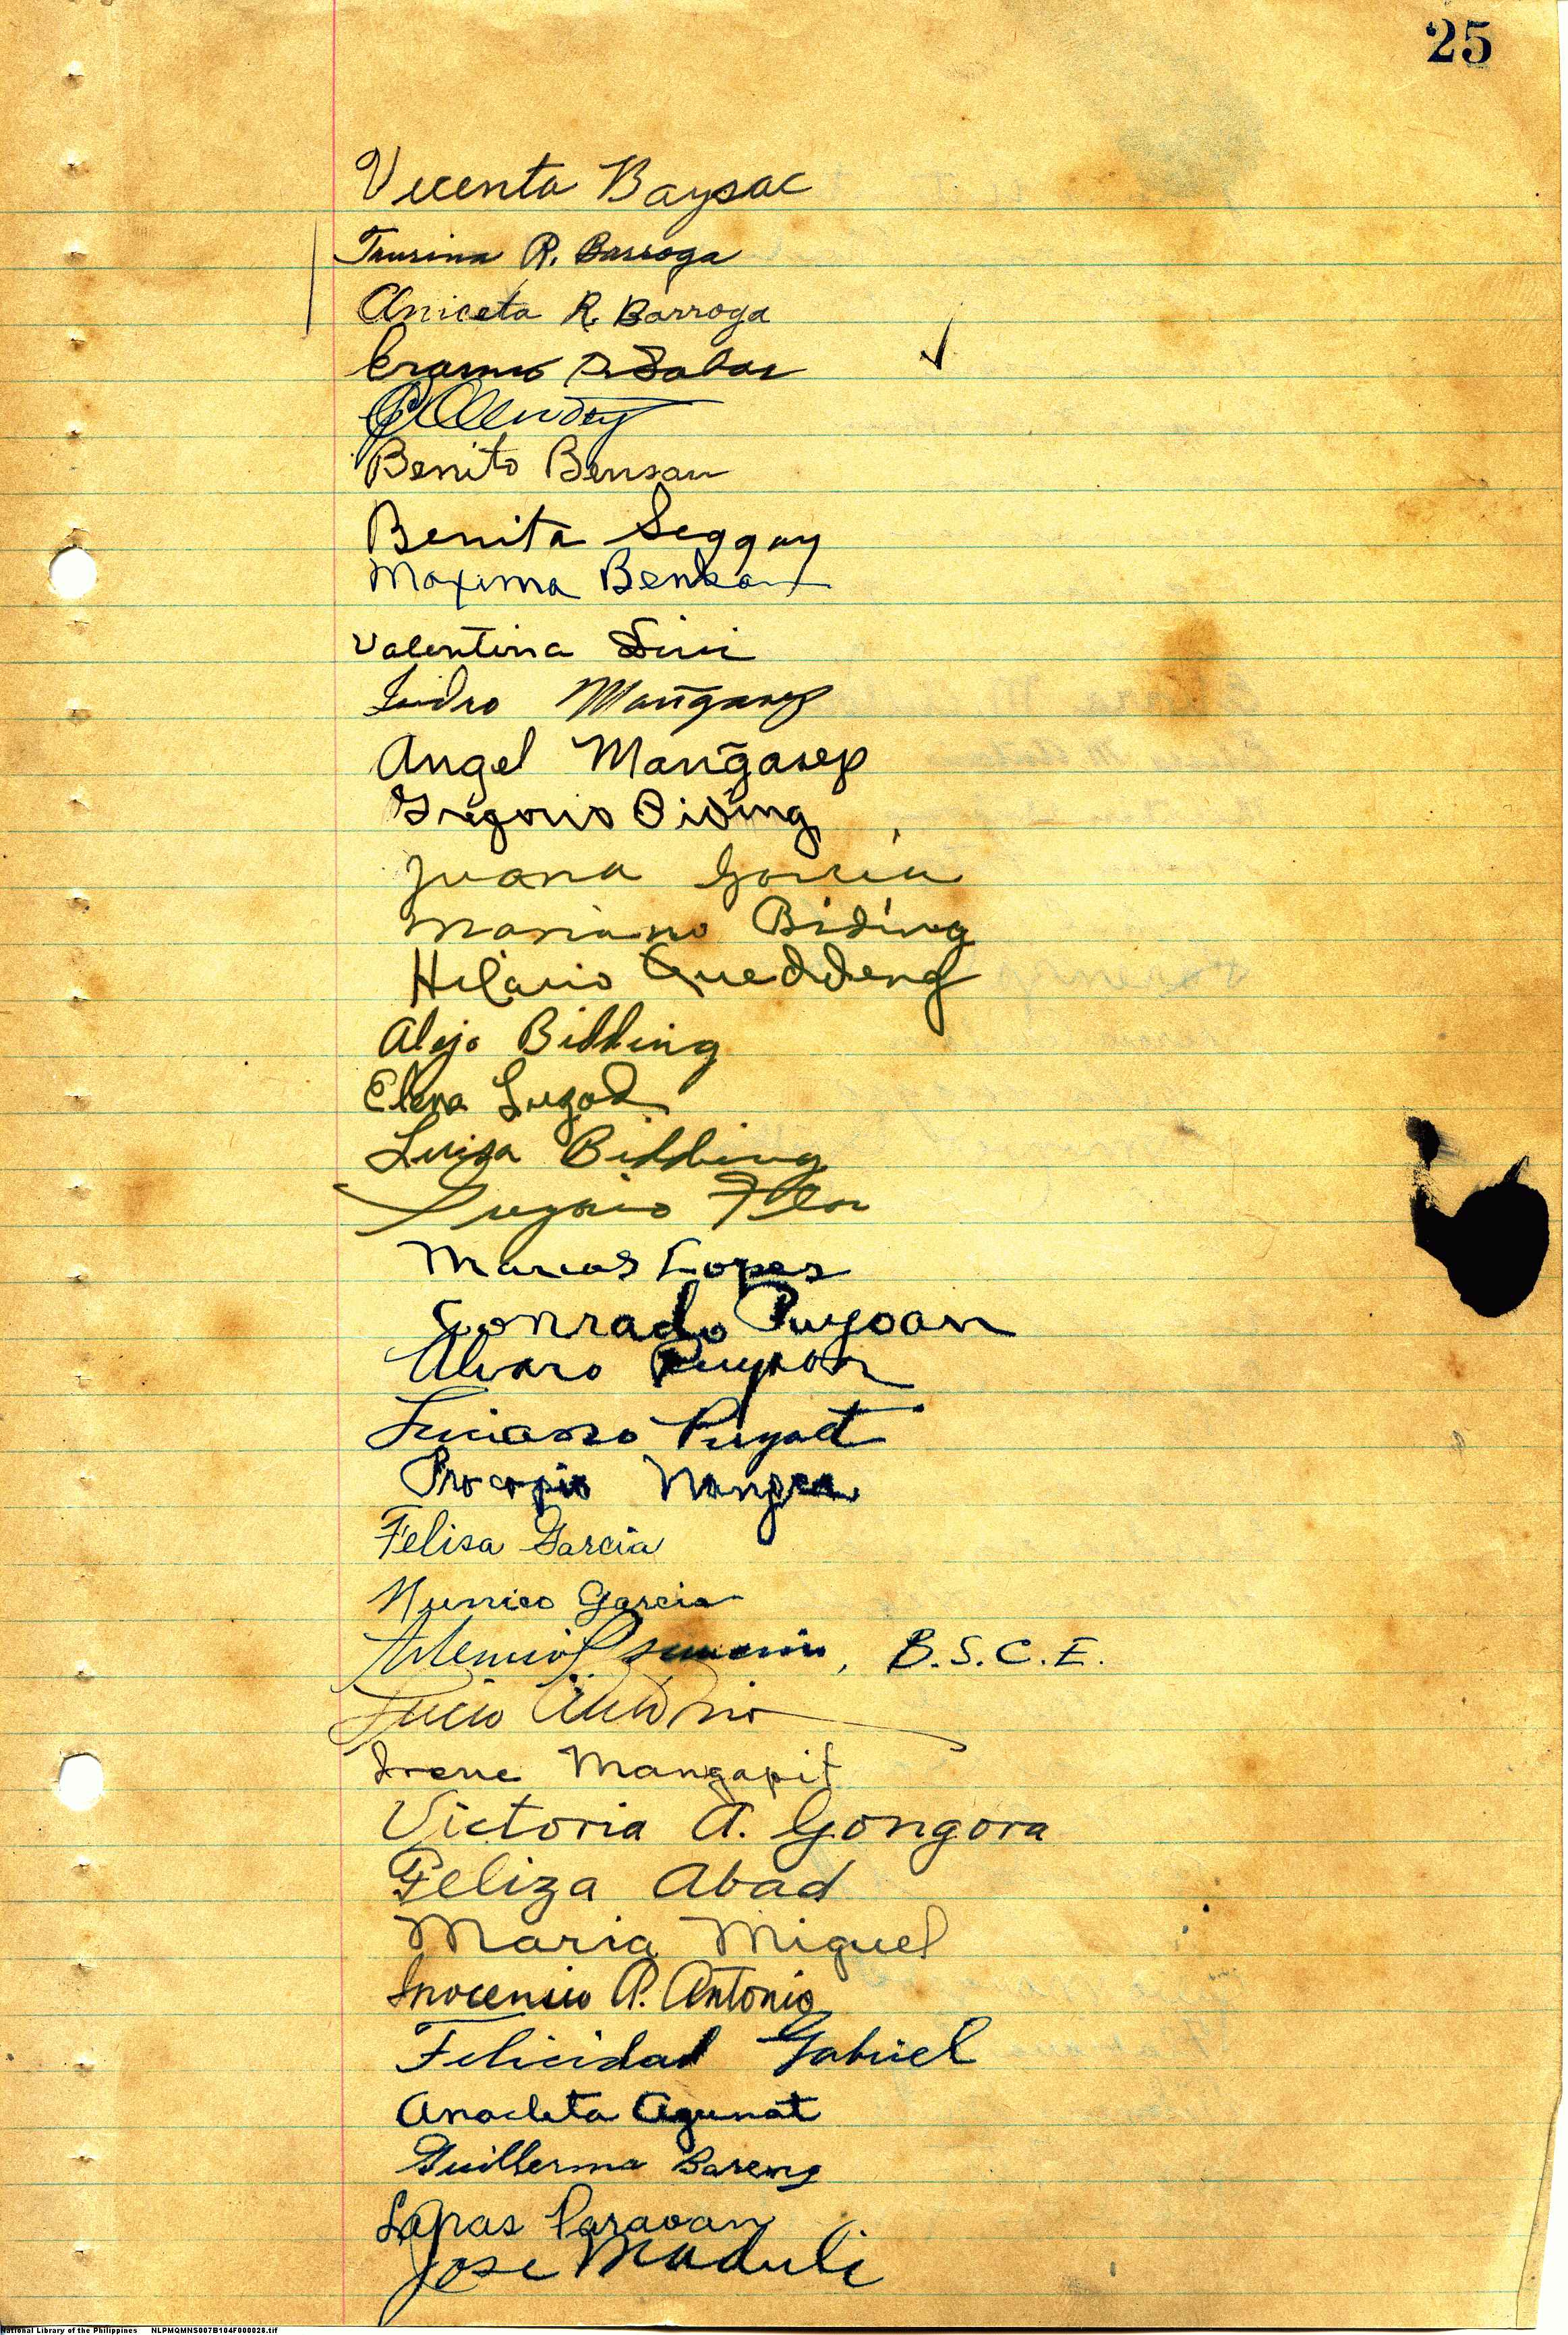 25
Vicenta Baysac
Taurina R. Barroga
Aniceta R. Barroga
Erasmo
Benito Bensan
Benita Seggay
Maxima Bensan
Valentina Sini
Isidro Mañgasep
Angel Mañgasep
Gregorio Biding
Juana Garcia
Mariano Biding
Hilario Queddeng
Alejo Bidding
Elena Lugod
Luisa Bidding
Flor
Marcos Lopes
Conrado Puyoan
Alvaro Puyoan
Luciano Puyaot
Procopio
Felisa Garcia
Garcia
Artemio B.S.C.E.
Lucio
Irene Mangapit
Victoria A. Gongora
Feliza Abad
Maria Miguel
Inocencio P. Antonio
Felicidad Gabriel
Anacleta Agunat
Guillerma Bareng
Lapas Paraoan
Jose Maduli
National Library of the Philippines NLPMQMNS007B104F000028.tif